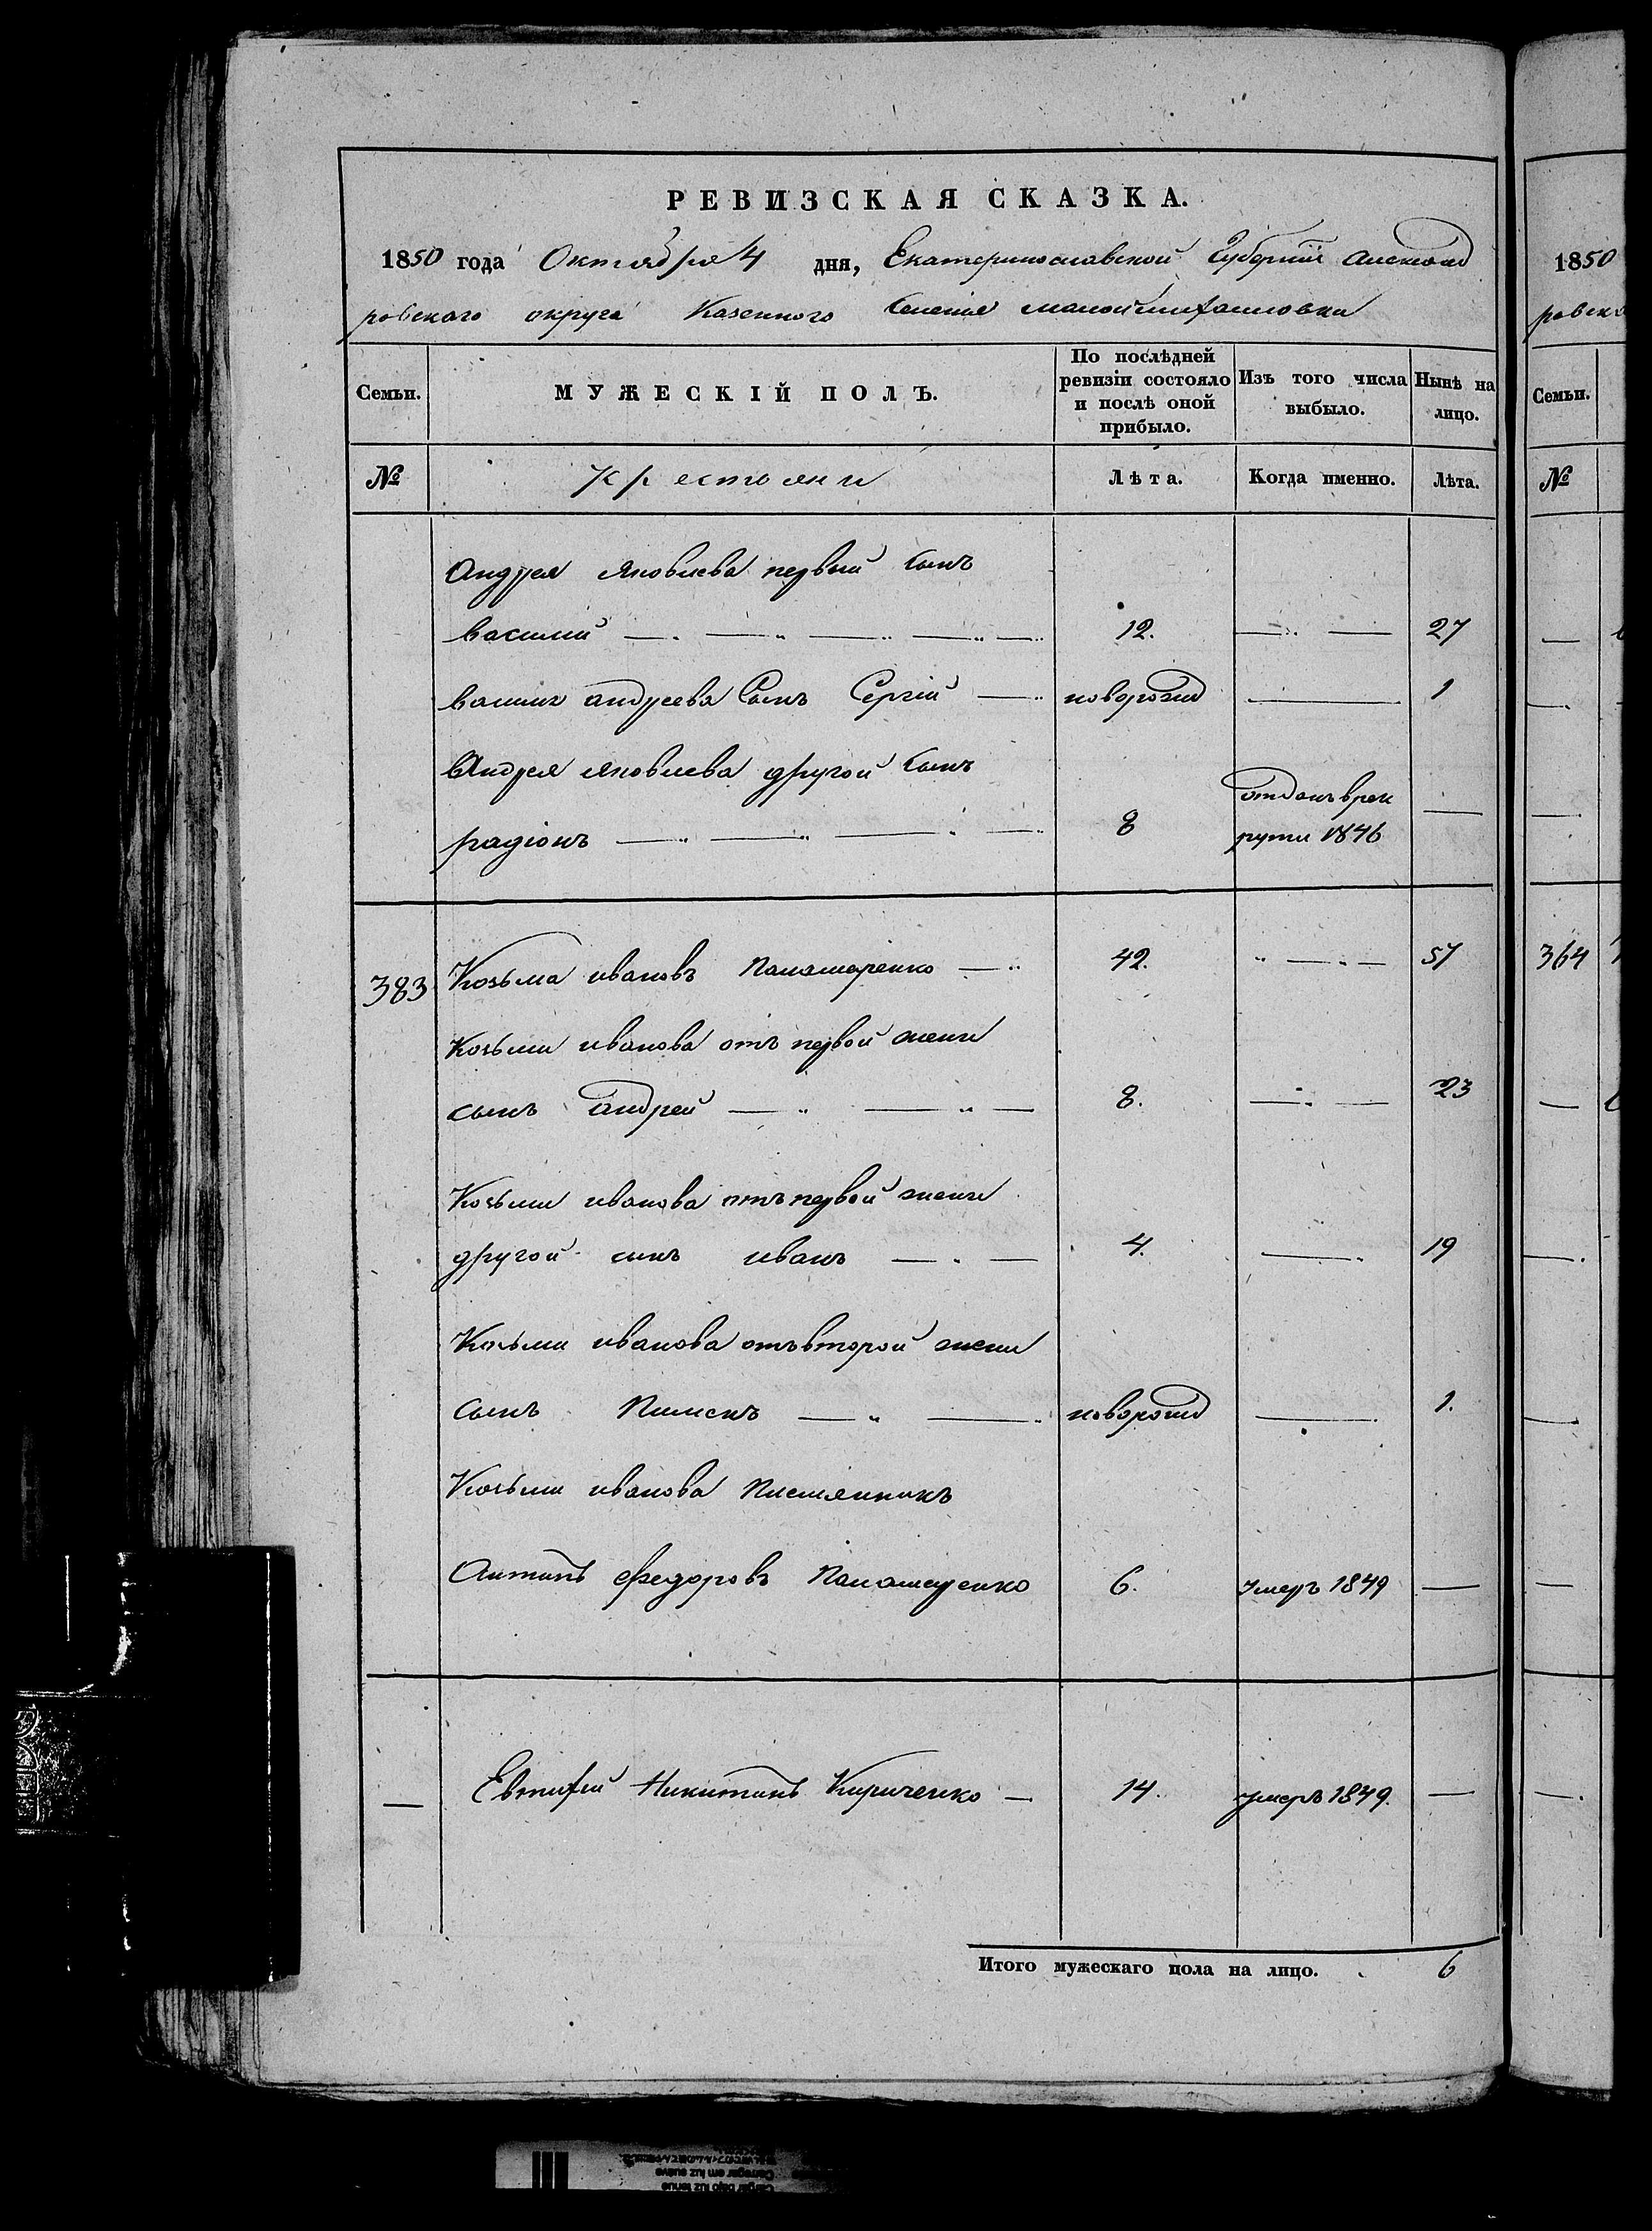 РЕВИЗСКАЯ СКАЗКА.
1850 года Октября 4 дня, Екатеринославской Губернии Александ
ровскаго округа Казенного Селения малоймихайловки
Семьи. МУЖЕСКІЙ ПОЛЪ. По послѣдней ревизіи состояло и послѣ оной прибыло. Изъ того числа выбыло. Нынѣ на лицо.
№ крестьяни Лѣта. Когда именно. Лѣта.
Андрея Яковлева первый сынъ
василий 12. 27
васили андреева Сынъ Сергій новорожд 1
Андрея яковлева другой сынъ
радіонъ 8 отданъ врек рути 1846
383 Козьма ивановъ Панашаренко 42. 57
Козьми иванова отъ первой жени
сынъ андрей 8. 23
Козьми иванова отъ первой жени
другой сынъ иванъ 4. 19
Козьми иванова отъ второй жени
сынъ Пименъ новорожд 1.
Козьми иванова племянникъ
Антипъ Федоровъ 6. умеръ 1849
Евтифей Никитинъ Кириченко 14. умеръ 1849.
Итого мужескаго пола на лицо. 6
1850
ровска
Семьи.
№
364